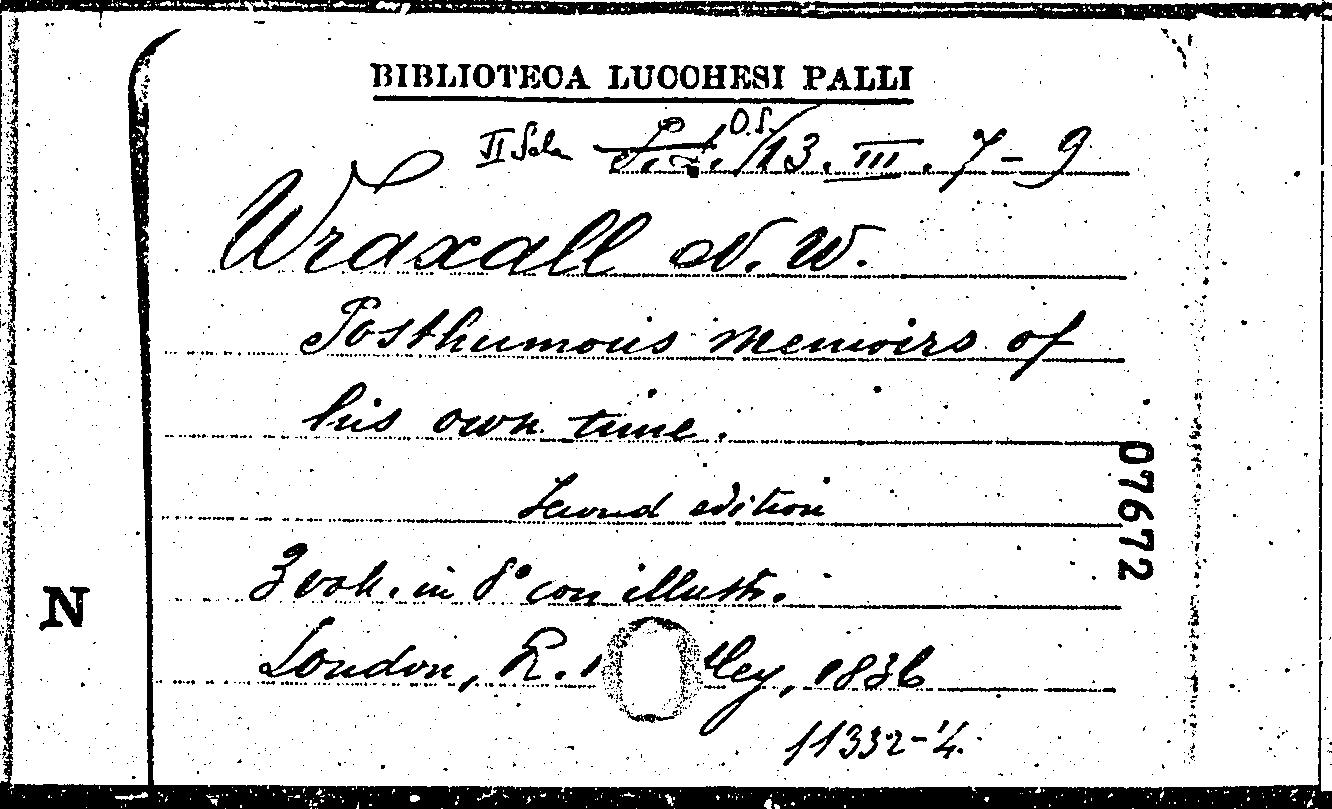 BIBLIOTECA LUCCHESI PALLI
II Sala O.S./13. III. 7-9
Wraxall N. W.
Posthumous memoirs of
his own time.
Second edition
07672
3 vol. in 8° con illustr.
N
London, R. tley, 1836
11332-4.